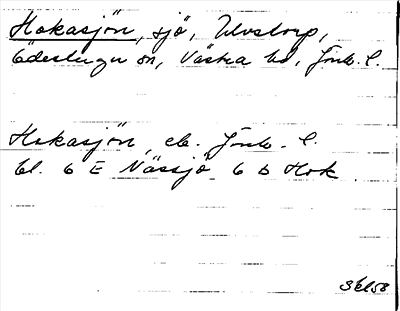 Hokasjön, sjö, Ulvstorp,
Ödestugu sn, Västra hd, Jönk. l.
Hokasjön, ek. Jönk. l.
bl. 6 E Nässjö 6 D Hok